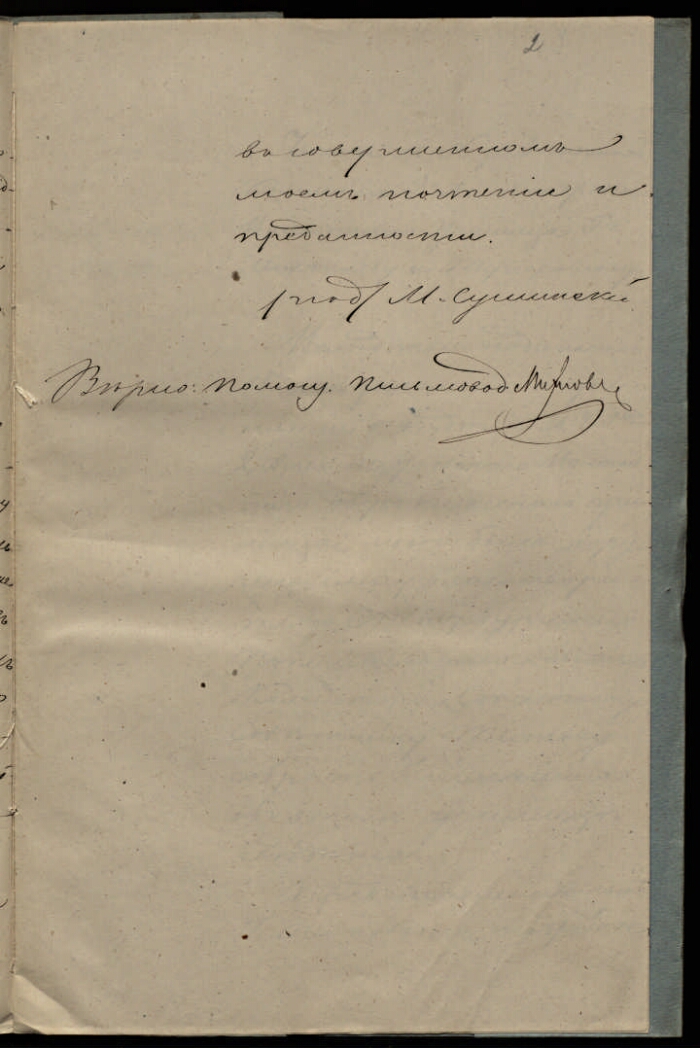 2
въ совершенномъ
моемъ почтеніи и
преданности.
/под/ М. Сушинскій
Вѣрно: Помощ. Письмовод.